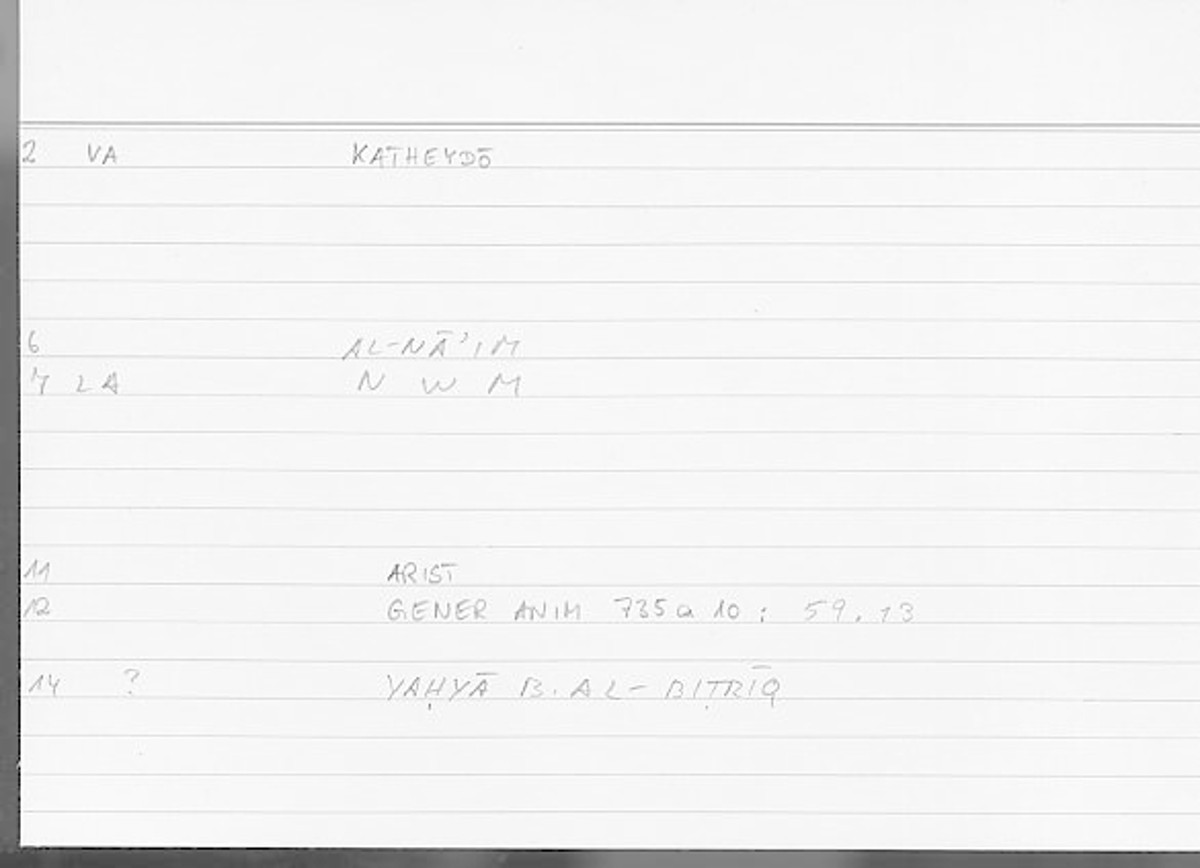 2 VA KATHEYDŌ
6 AL-NĀ'IM
7 LA N W M
11 ARIST
12 GENER ANIM 735a 10 : 59.13
14 ? YAḤYĀ B. AL-BIṬRĪQ